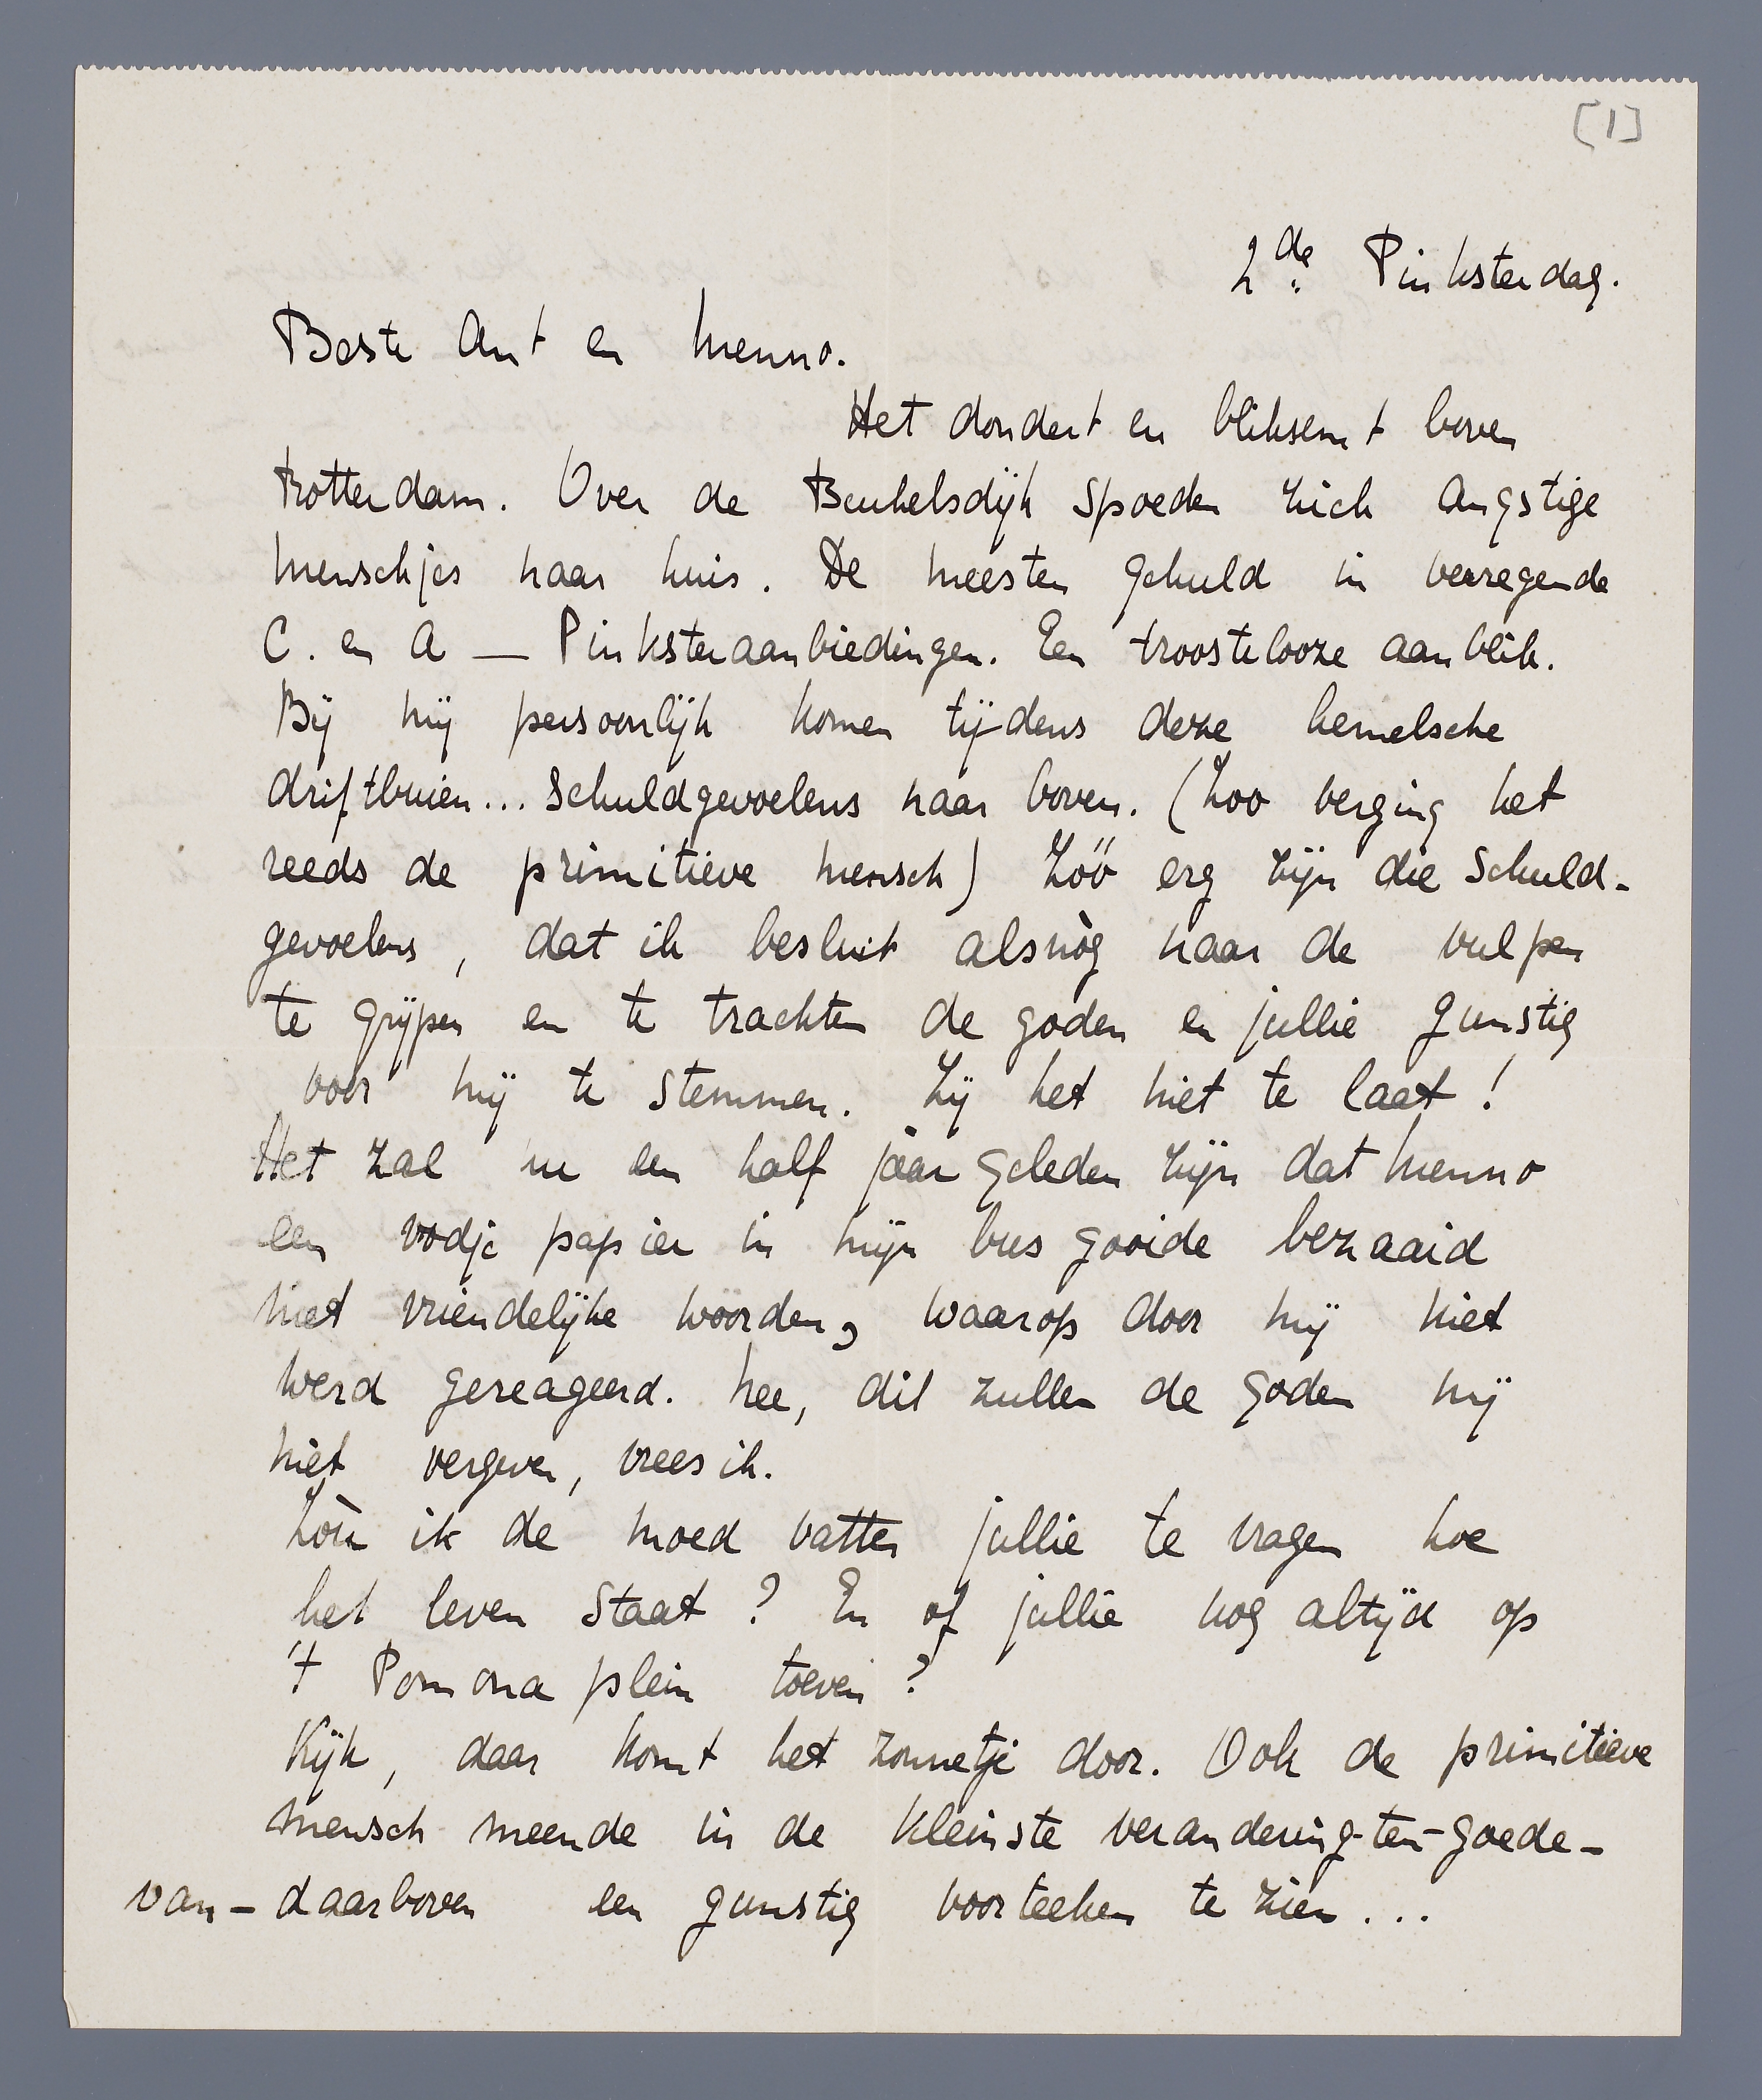 [1]
2de Pinksterdag.
Beste Ant en Menno.
Het dondert en bliksemt boven
Rotterdam. Over de Beukelsdijk spoeden zich angstige
menschjes naar huis. De meesten gehuld in verregende
C. en A — Pinksteraanbiedingen. Een troostelooze aanblik.
Bij mij persoonlijk komen tijdens deze hemelsche
driftbuien... schuldgevoelens naar boven. (Zoo verging het
reeds de primitieve mensch) Zóó erg zijn die schuld-
gevoelens, dat ik besluit alsnòg naar de vulpen
te grijpen en te trachten de goden en jullie gunstig
voor mij te stemmen. Zij het niet te laat!
Het zal nu een half jaar geleden zijn dat Menno
een vodje papier in mijn bus gooide bezaaid
met vriendelijke woorden, waarop door mij niet
werd gereageerd. Nee, dit zullen de goden mij
niet vergeven, vrees ik.
Zòu ik de moed vatten jullie te vragen hoe
het leven staat? En of jullie nog altijd op
't Pomona plein toeven?
Kijk, daar komt het zonnetje door. Ook de primitieve
mensch meende in de kleinste verandering-ten-goede-
van-daarboven een gunstig voorteeken te zien...